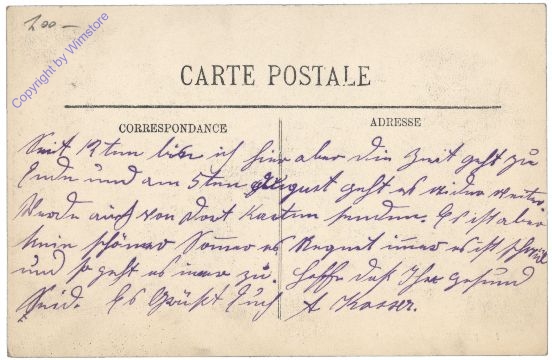 200 -
Copyright by Wimstore
CARTE POSTALE
CORRESPONDANCE
ADRESSE
Seit 12ten bin ich hier aber die Zeit geht zu
Ende und am 5ten August geht es wider weiter
Werde auch von dort Karten senden. Es ist aber
kein schöner Somer es Regnet immer es ist
und so geht es immer zu. Hoffe daß Ihr gesund
Seid. Es Grüßt Euch A Kasser.